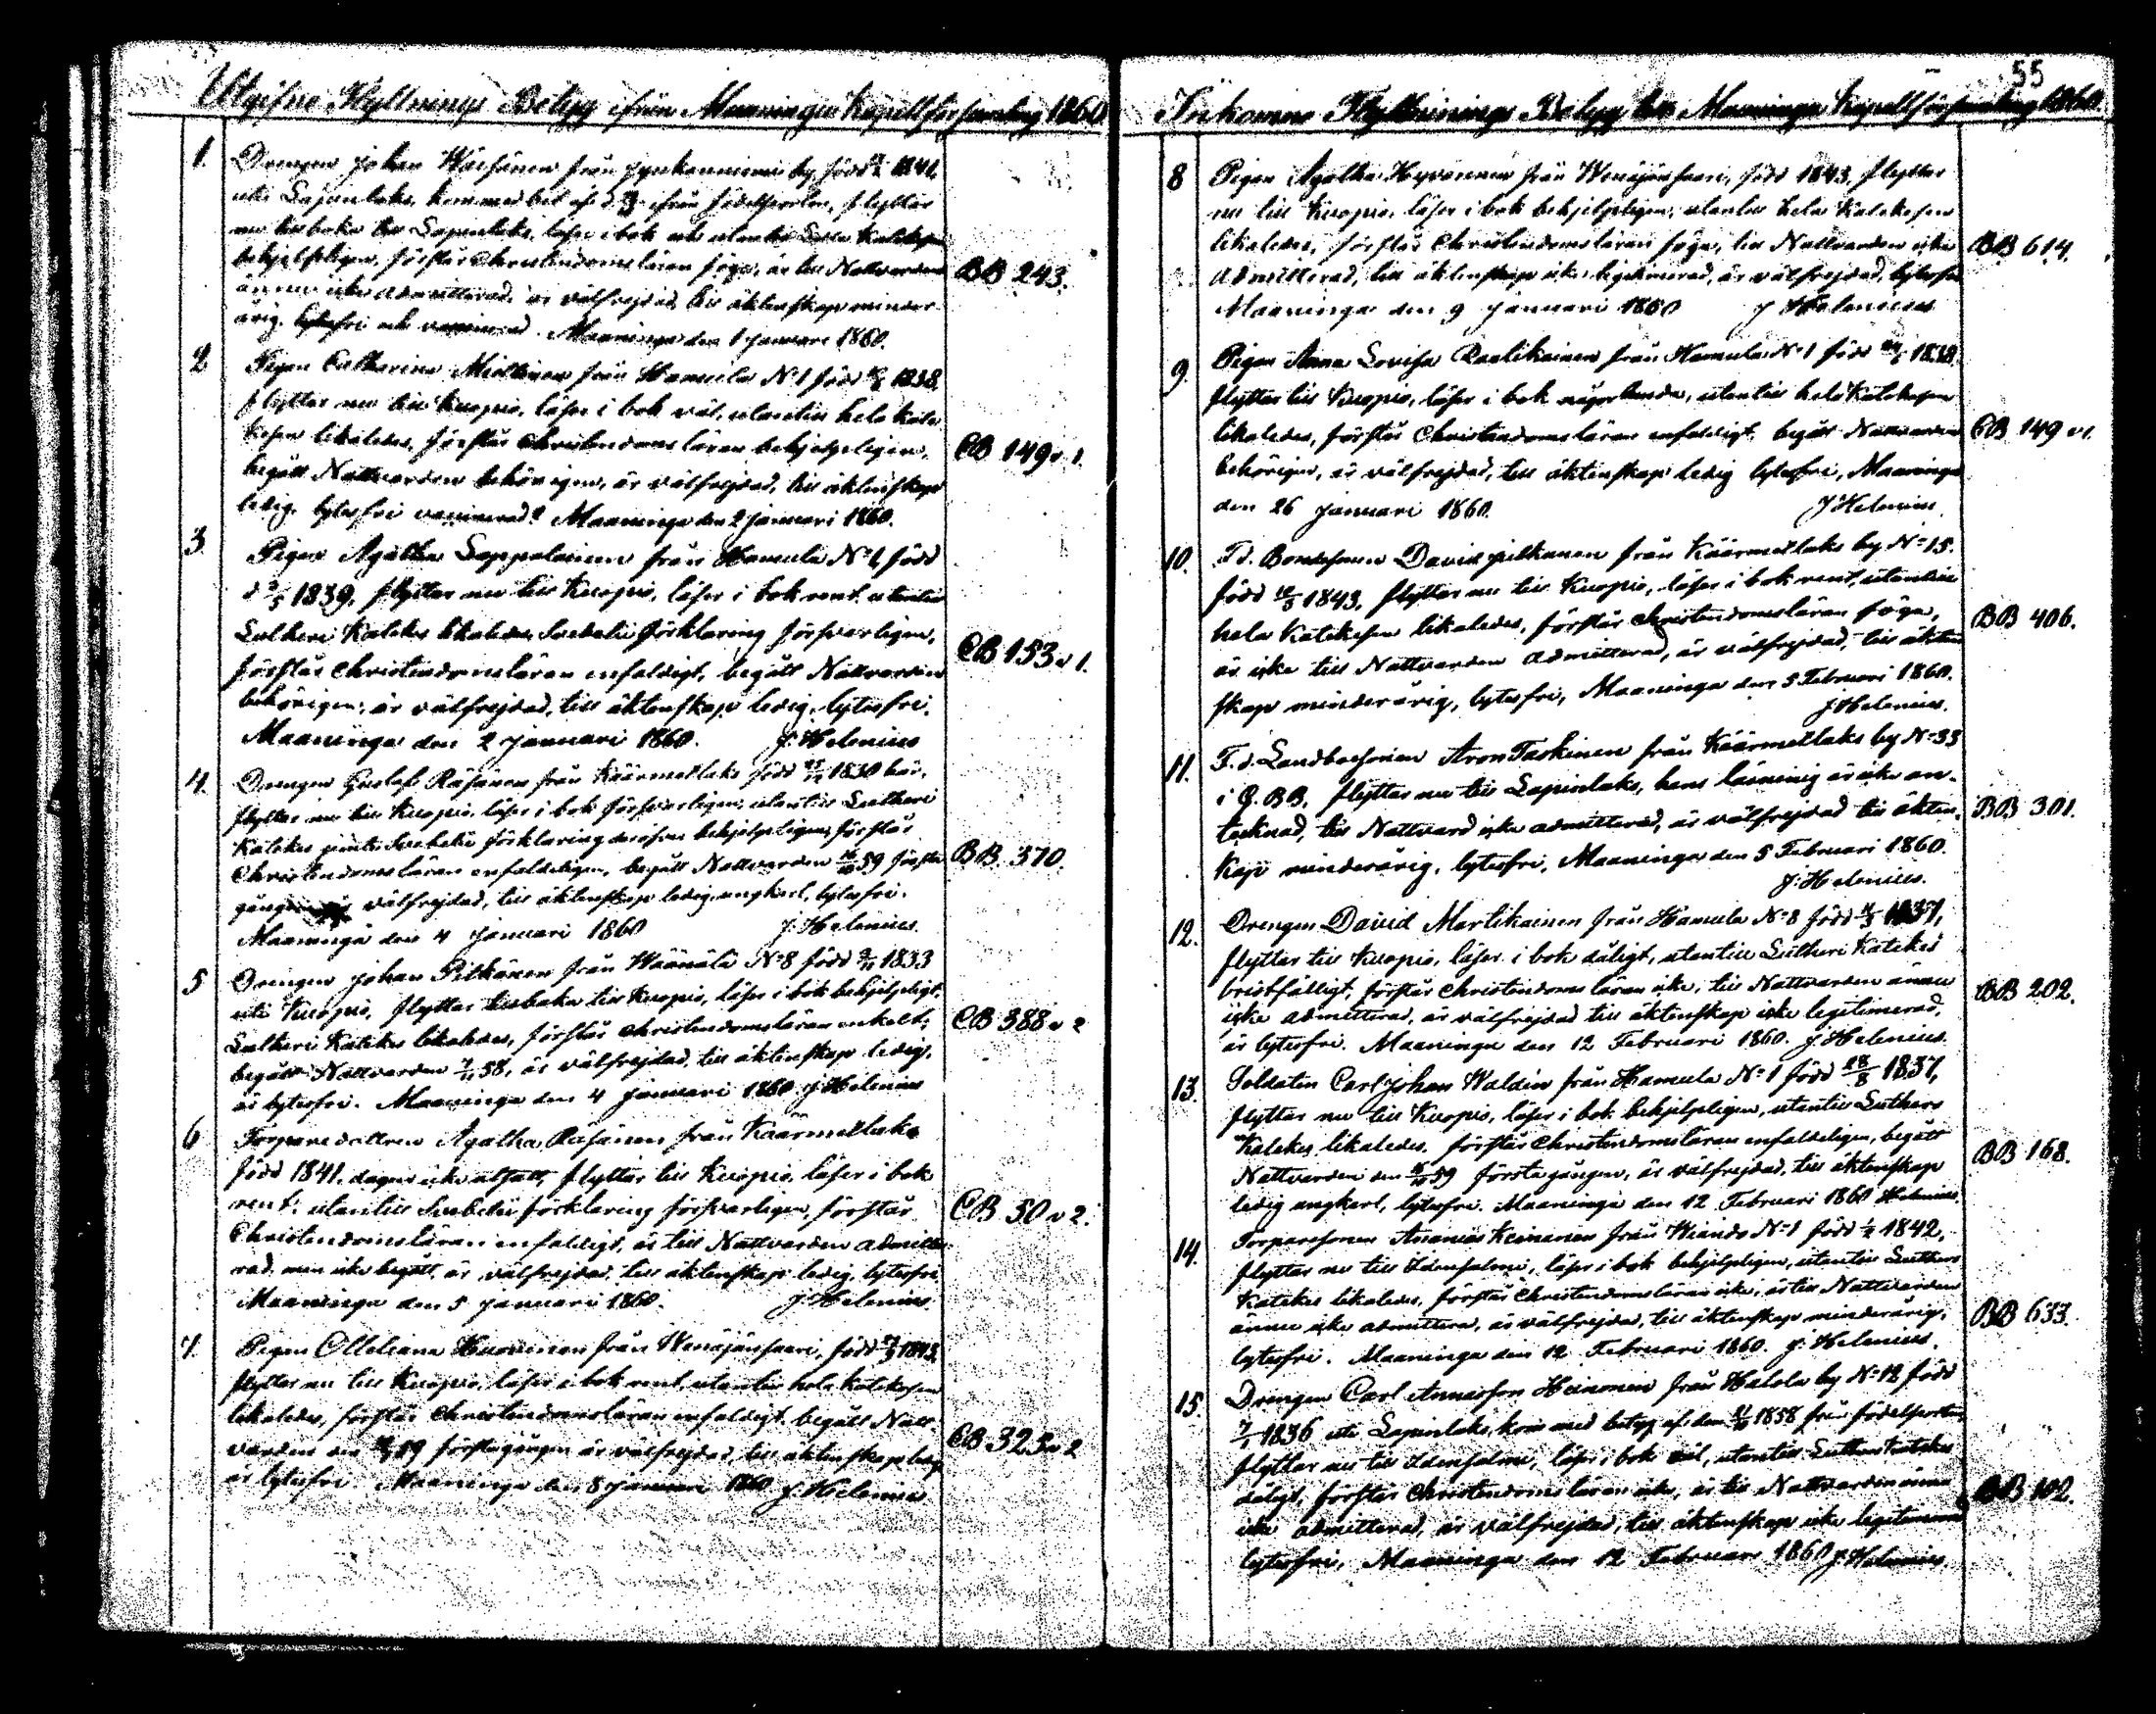 Utgifne Flyttnings Betyg ifrån Maaninga Kapellförsamling 1860
1. Drengen Johan Wäisänen från by, född 1841,
uti Lapinlaks, kom med bet. af d. ifrån födelseorten, flyttar
nu tilbaka till Lapinlaks, läser i bok och utantill hela Katekesen
behjelpligen, förstår Christendomsläran föga, är till Nattvarden BB 243.
ännu icke admitterad, är välfrejdad, till äktenskap minder-
årig, lytesfri och vaccinerad. Maaninga den 1 Januari 1860.
2 Pigan Catharina Miettinen från Hamula N:o 1 född 1838,
flyttar nu till Kuopio, läser i bok väl, utantill hela Kate-
kesen likaledes, förstår Christendomsläran behjelpligen, CB 149 v 1.
begått Nattvarden behörigen, är välfrejdad, till äktenskap
ledig, lytesfri vaccinerad. Maaninga den 2 Januari 1860.
3 Pigan Agatha Lappalainen från Hamula N:o 1, född
d 1839, flyttar nu till Kuopio, läser i bok rent, utantill
Lutheri Katekes likaledes, Svebelii förklaring försvarligen, CB 153 v 1.
förstår Christendomsläran enfaldigt, begått Nattvarden
behörigen, är välfrejdad, till äktenskap ledig, lytesfri.
Maaninga den 2 Januari 1860. J: Helenius
4. Drengen Gustaf Räsänen från Käärmetlaks född 1830 här,
flyttar nu till Kuopio, läser i bok försvarligen, utantill Lutheri
Katekes jemte Svebelii förklaring deröfver behjelpligen, förstår
Christendomsläran enfaldeligen, begått Nattvarden 59 första BB. 370.
gången välfrejdad, till äktenskap ledig ungkarl, lytesfri.
Maaninga den 4 Januari 1860 J: Helenius.
5 Drengen Johan Pitkänen från Wäänälä N:o 8 född 9/11 1833
uti Kuopio, flyttar tilbaka till Kuopio, läser i bok behjelpligt,
Lutheri Katekes likaledes, förstår Christendomsläran enkelt, CB 388 v 2
begått Nattvarden 58, är välfrejdad, till äktenskap ledig,
är lytesfri. Maaninga den 4 Januari 1860 J: Helenius
6 Torparedottren Agatha Räsänen från Käärmetlaks
född 1841, dagen icke utsatt, flyttar till Kuopio, läser i bok
rent, utantill Svebelii förklaring försvarligen, förstår CB 50 v 2.
Christendomsläran enfaldigt, är till Nattvarden admitte-
rad, men icke begått, är välfrejdad, till äktenskap ledig, lytesfri.
Maaninga den 5 Januari 1860. J: Helenius
7. Pigan Huovinen från Wenäjänsaari, född 1843,
flyttar nu till Kuopio, läser i bok rent, utantill hela Katekesen
likaledes, förstår Christendomsläran enfaldigt, begått Natt-
varden den 59 första gången, är välfrejdad, till äktenskap ledig CB 323 v 2
är lytesfri. Maaninga den 8 Januari 1860 J: Helenius
55
Inkomne Flyttnings Betyg till Maaninga Kapellförsamling 1860.
8 Pigan Agatha Hyvärinen från Wenäjänsaari, född 1843, flyttar
nu till Kuopio, läser i bok behjelpligen, utantill hela Katekesen
likaledes, förstår Christendomsläran föga, till Nattvarden icke BB 614.
admitterad, till äktenskap icke legitimerad, är välfrejdad, lytesfri
Maaninga den 9 Januari 1860 J Helenius
9. Pigan Anna Lovisa Raatikainen från Hamula N:o 1 född 1838,
flyttar till Kuopio, läser i bok någorlunda, utantill hela Katekesen
likaledes, förstår Christendomsläran enfaldigt, begått Nattvarden CB 149 v 1.
behörigen, är välfrejdad, till äktenskap ledig lytesfri, Maaninga
den 26 Januari 1860. J Helenius.
10. F.d. Bondesonen David Pitkänen från Käärmetlaks by N:o 15.
född 1843, flyttar nu till Kuopio, läser i bok rent, utantill
hela Katekesen likaledes, förstår Christendomsläran föga, BB 406.
är icke till Nattvarden admitterad, är välfrejdad, till äkten-
skap minderårig, lytesfri, Maaninga den 5 Februari 1860.
J Helenius.
11. F.d. Landbosonen Aron Taskinen från Käärmetlaks by N:o 33
i G. BB, flyttar nu till Lapinlaks, hans läsning är icke an-
tecknad, till Nattvard icke admitterad, är välfrejdad till äkten- BB 301.
skap minderårig, lytesfri, Maaninga den 5 Februari 1860.
J: Helenius.
12. Drengen David Martikainen från Hamula N:o 8 född 1837,
flyttar till Kuopio, läser i bok dåligt, utantill Lutheri Katekes
bristfälligt, förstår Christendomsläran icke, till Nattvarden ännu BB 202.
icke admitterad, är välfrejdad till äktenskap icke legitimerad,
är lytesfri. Maaninga den 12 Februari 1860. J Helenius.
13. Soldaten Carl Johan Waldén från Hamula N:o 1 född 28/8 1837,
flyttar nu till Kuopio, läser i bok behjelpligen, utantill Luthers
Katekes likaledes, förstår Christendomsläran enfaldeligen, begått BB 168.
Nattvarden den 59 första gången, är välfrejdad, till äktenskap
ledig ungkarl, lytesfri. Maaninga den 12 Februari 1860 Helenius.
14. Torparesonen Ananias Keinänen från N:o 1 född 1842,
flyttar nu till Idensalmi, läser i bok behjelpligen, utantill Luthers
Katekes likaledes, förstår Christendomsläran icke, är till Nattvarden
ännu icke admitterad, är välfrejdad, till äktenskap minderårig, BB 633.
lytesfri. Maaninga den 12 Februari 1860. J: Helenius.
15. Drengen Carl Heinonen från Halola by N:o 12 född
7/1 1836 uti Lapinlaks, kom med betyg af den 1858 från födelseorten
flyttar nu till Idensalmi, läser i bok väl, utantill Luthers Katekes
dåligt, förstår Christendomsläran icke, är till Nattvarden ännu BB 102.
icke admitterad, är välfrejdad, till äktenskap icke legitimerad
lytesfri, Maaninga den 12 Februari 1860 J: Helenius.